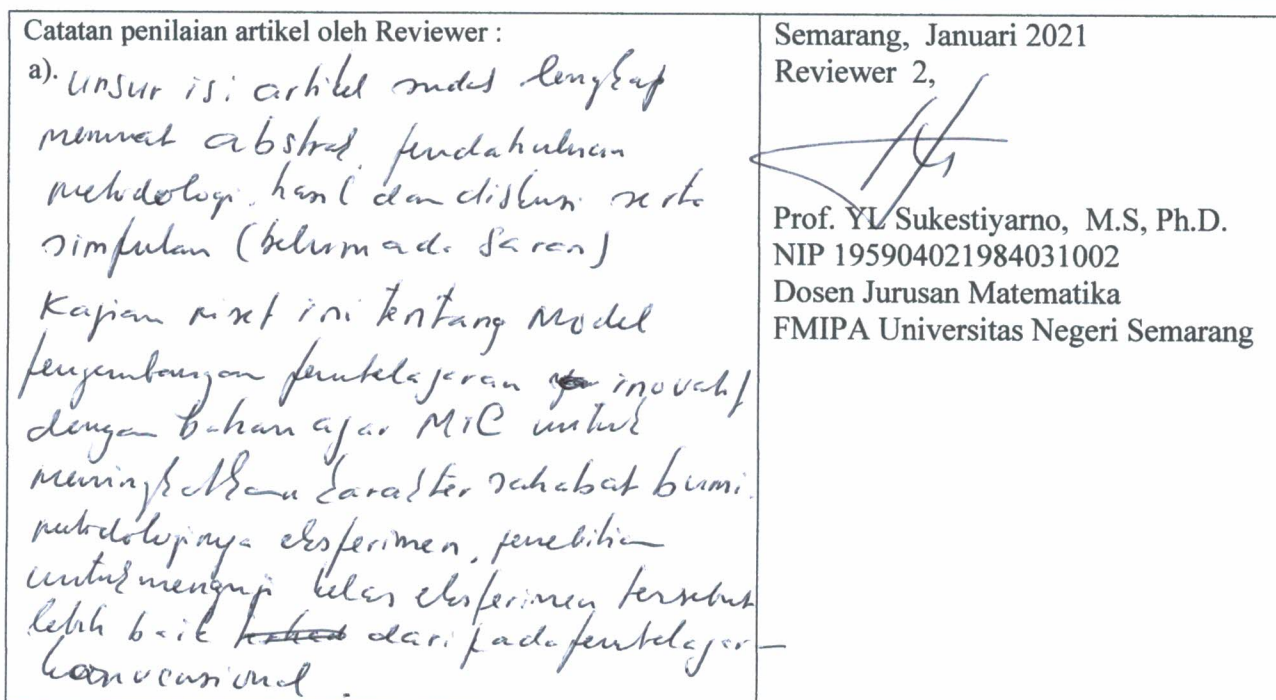 Catatan penilaian artikel oleh Reviewer :
a). Unsur isi artikel sudah lengkap
memuat abstrak, pendahuluan
metodologi, hasil dan diskusi serta
simpulan (belum ada saran)
Kajian riset ini tentang Model
pengembangan pembelajaran inovatif
dengan bahan ajar MiC untuk
meningkatkan karakter sahabat bumi.
metodologinya eksperimen, penelitian
untuk menguji kelas eksperimen tersebut
lebih baik dari pada pembelajar-
konvensional.
Semarang, Januari 2021
Reviewer 2,
Prof. YL Sukestiyarno, M.S, Ph.D.
NIP 195904021984031002
Dosen Jurusan Matematika
FMIPA Universitas Negeri Semarang